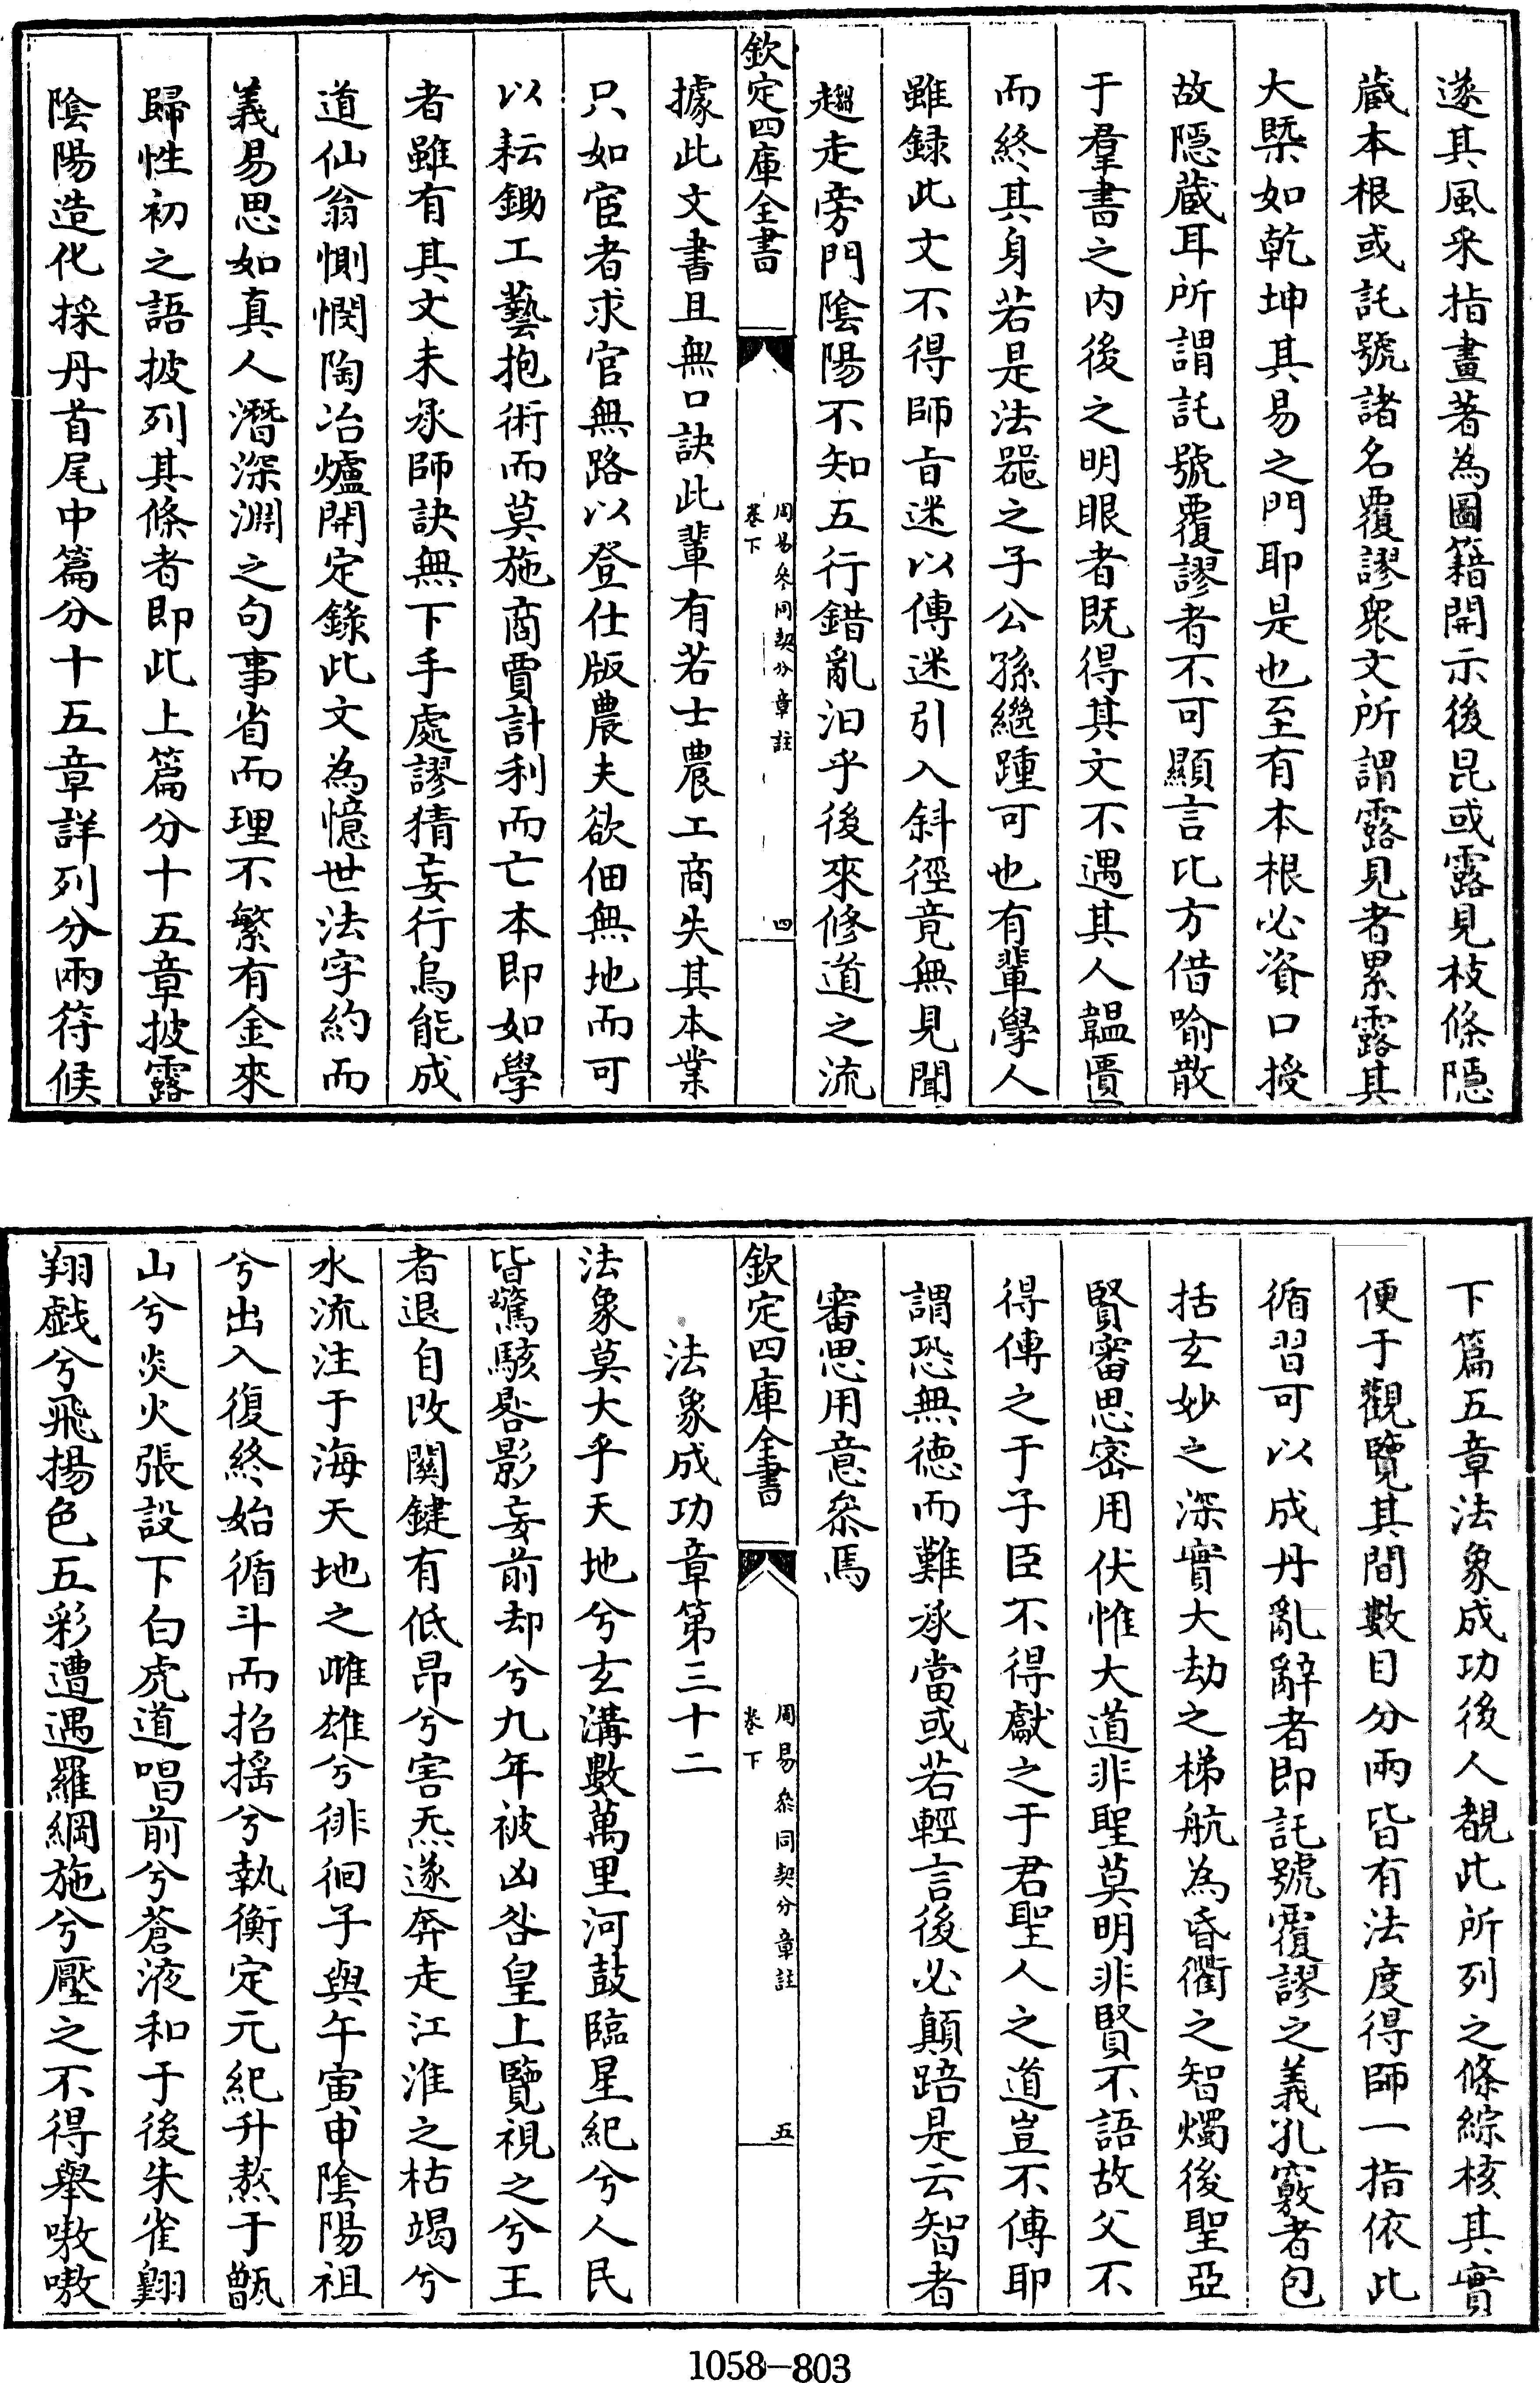 遂其風采指畫著為圖籍開示後昆或露見枝條隱
藏本根或託號諸名覆謬衆文所謂露見者累露其
大槩如乾坤其易之門耶是也至有本根必資口授
故隠蔵耳所謂託號覆謬者不可顯言比方借喻散
于羣書之内後之明眼者既得其文不遇其人韞匱
而終其身若是法器之子公孫繼踵可也有輩學人
雖録此文不得師旨迷以傳迷引入斜徑竟無見聞
趨走旁門陰陽不知五行錯亂汩乎後來修道之流
欽定四庫全書
周易参同契分章註
卷下
四
據此文書且無口訣此輩有若士農工商失其本業
只如宦者求官無路以登仕版農夫欲佃無地而可
以耘鋤工藝抱術而莫施商賈計利而亡本即如學
者雖有其文未承師訣無下手處謬猜妄行烏能成
道仙翁惻憫陶冶爐開定錄此文為憶世法字約而
義易思如真人潛深淵之句事省而理不繁有金來
歸性初之語披列其條者即此上篇分十五章披露
陰陽造化採丹首尾中篇分十五章詳列分兩符候
下篇五章法象成功後人覩此所列之條綜核其實
便于觀覽其間數目分兩皆有法度得師一指依此
循習可以成丹亂辭者即託號覆謬之義孔竅者包
括玄妙之深實大劫之梯航為昏衢之智燭後聖亞
賢審思密用伏惟大道非聖莫明非賢不語故父不
得傳之于子臣不得獻之于君聖人之道豈不傳耶
謂恐無德而難承當或若輕言後必顛踣是云智者
審思用意叅焉
欽定四庫全書
周易叅同契分章註
卷下
五
法象成功章第三十二
法象莫大乎天地兮玄溝數萬里河鼓臨星紀兮人民
皆驚駭晷影妄前却兮九年被凶咎皇上覽視之兮王
者退自改關鍵有低昂兮害炁遂奔走江淮之枯竭兮
水流注于海天地之雌雄兮徘徊子與午寅申陰陽祖
兮出入復終始循斗而招摇兮執衡定元紀升熬于甑
山兮炎火張設下白虎道唱前兮蒼液和于後朱雀翺
翔戲兮飛揚色五彩遭遇羅網施兮壓之不得舉嗷嗷
1058-803